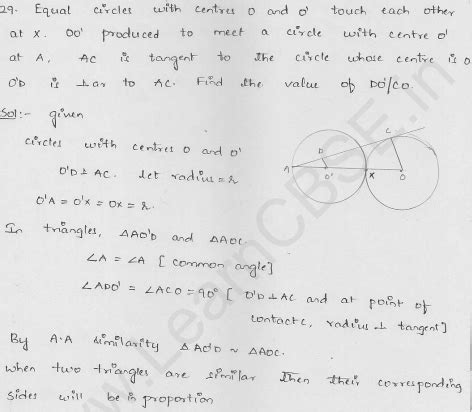 29. Equal circles with centres O and O' touch each other
at X. OO' produced to meet a circle with centre O'
at A, AC is tangent to the circle whose centre is O
O'D is ⊥ar to AC. Find the value of DO'/CO.
Sol:- given
circles with centres O and O'
O'D ⊥ AC. let radius = r
O'A = O'X = OX = r.
In triangles, △AO'D and △AOC.
∠A = ∠A [common angle]
∠ADO' = ∠ACO = 90° [O'D ⊥ AC and at point of
contact C, radius ⊥ tangent]
By A.A similarity △AO'D ~ △AOC.
when two triangles are similar then their corresponding
sides will be in proportion
A
D
O'
X
C
O
www.LearnCBSE.in